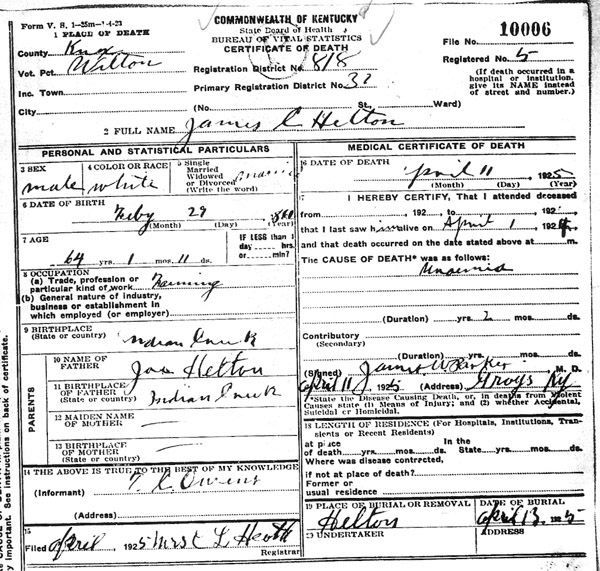 Form V. S. 1—25m—1-4-23
1 PLACE OF DEATH
County Knox
Vot. Pct. Wilton
Inc. Town
City
COMMONWEALTH OF KENTUCKY
State Board of Health
BUREAU OF VITAL STATISTICS
CERTIFICATE OF DEATH
Registration District No. 818
Primary Registration District No. 32
(No St., Ward)
File No. 10006
Registered No. 5
(If death occurred in a
hospital or institution,
give its NAME instead
of street and number.)
2 FULL NAME James C Helton
PERSONAL AND STATISTICAL PARTICULARS
3 SEX
male
4 COLOR OR RACE
white
5 Single
Married
Widowed
or Divorced
(Write the word)
6 DATE OF BIRTH
Feby 29
(Month) (Day) (Year)
7 AGE
64 yrs. 1 mos. 11 ds.
IF LESS than
day hrs.
or min?
8 OCCUPATION
(a) Trade, profession or
particular kind of work Farming
(b) General nature of industry,
business or establishment in
which employed (or employer)
9 BIRTHPLACE
(State or country) Indian Creek
PARENTS
10 NAME OF
FATHER Helton
11 BIRTHPLACE
OF FATHER
(State or country) Indian Creek
12 MAIDEN NAME
OF MOTHER
13 BIRTHPLACE
OF MOTHER
(State or country)
14 THE ABOVE IS TRUE TO THE BEST OF MY KNOWLEDGE
(Informant) T. C. Owens
(Address)
15
Filed April 1925 Mrs C L Heath
Registrar
MEDICAL CERTIFICATE OF DEATH
16 DATE OF DEATH
April 11 1925
(Month) (Day) (Year)
17 I HEREBY CERTIFY, That I attended deceased
from 192 to 192
that I last saw him alive on April 1 192
and that death occurred on the date stated above at m.
The CAUSE OF DEATH* was as follows:
(Duration) yrs. 2 mos. ds.
Contributory
(Secondary)
(Duration) yrs. mos. ds.
(Signed) James W Parker M. D.
April 11 1925 (Address) Grays Ky
*State the Disease Causing Death, or, in deaths from Violent
Causes state (1) Means of Injury; and (2) whether Accidental,
Suicidal or Homicidal.
18 LENGTH OF RESIDENCE (For Hospitals, Institutions, Tran-
sients or Recent Residents)
At place In the
of death yrs. mos. ds. State yrs. mos. ds.
Where was disease contracted,
if not at place of death?
Former or
usual residence
19 PLACE OF BURIAL OR REMOVAL
Helton
DATE OF BURIAL
April 13, 1925
20 UNDERTAKER
ADDRESS
y important. See instructions on back of certificate.